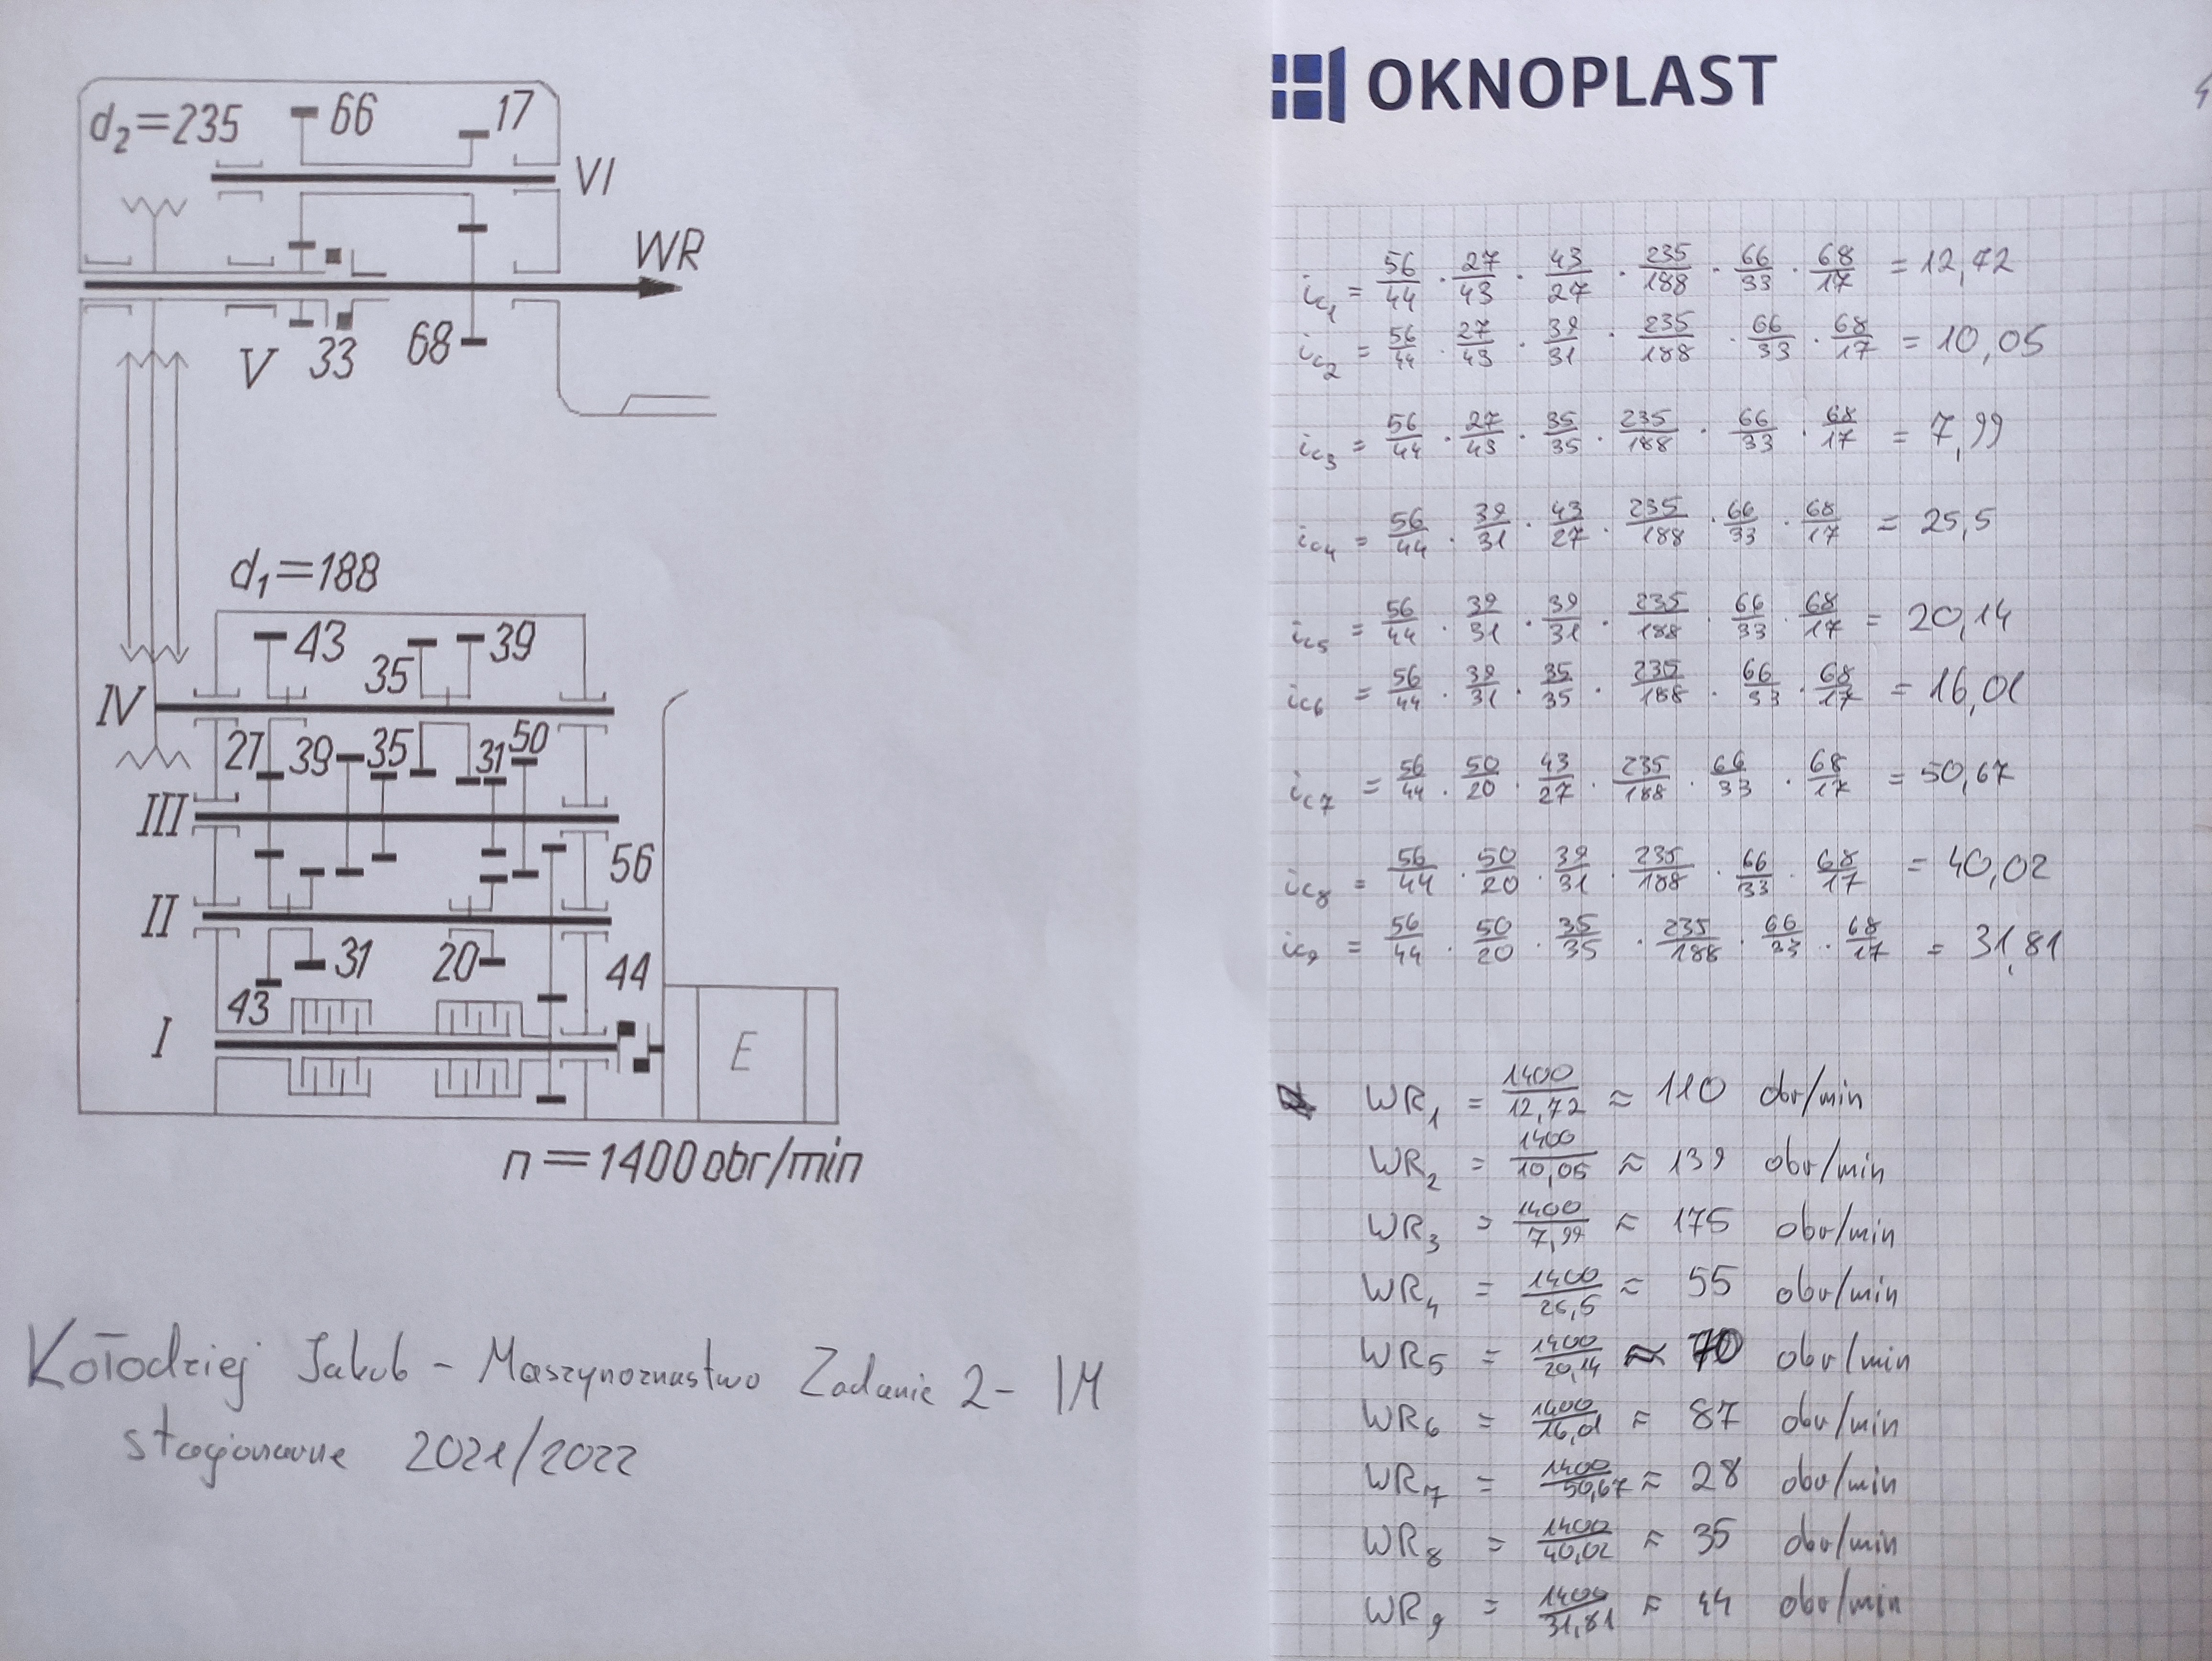 d₂=235 66 17
VI
WR
V 33 68
d₁=188
43 35 39
IV
27 39 35 31 50
III
56
II
31 20 44
43
I E
n=1400obr/min
Kołodziej Jakub - Maszynoznastwo Zadanie 2- IM
stacjonarne 2021/2022
OKNOPLAST
ic₁ = 56/44 · 27/43 · 43/27 · 235/188 · 66/33 · 68/17 = 12,72
ic₂ = 56/44 · 27/43 · 39/31 · 235/188 · 66/33 · 68/17 = 10,05
ic₃ = 56/44 · 27/43 · 35/35 · 235/188 · 66/33 · 68/17 = 7,99
ic₄ = 56/44 · 39/31 · 43/27 · 235/188 · 66/33 · 68/17 = 25,5
ic₅ = 56/44 · 39/31 · 39/31 · 235/188 · 66/33 · 68/17 = 20,14
ic₆ = 56/44 · 39/31 · 35/35 · 235/188 · 66/33 · 68/17 = 16,01
ic₇ = 56/44 · 50/20 · 43/27 · 235/188 · 66/33 · 68/17 = 50,67
ic₈ = 56/44 · 50/20 · 39/31 · 235/188 · 66/33 · 68/17 = 40,02
ic₉ = 56/44 · 50/20 · 35/35 · 235/188 · 66/33 · 68/17 = 31,81
WR₁ = 1400/12,72 ≈ 110 obr/min
WR₂ = 1400/10,05 ≈ 139 obr/min
WR₃ = 1400/7,99 ≈ 175 obr/min
WR₄ = 1400/25,5 ≈ 55 obr/min
WR₅ = 1400/20,14 ≈ 70 obr/min
WR₆ = 1400/16,01 ≈ 87 obr/min
WR₇ = 1400/50,67 ≈ 28 obr/min
WR₈ = 1400/40,02 ≈ 35 obr/min
WR₉ = 1400/31,81 ≈ 44 obr/min